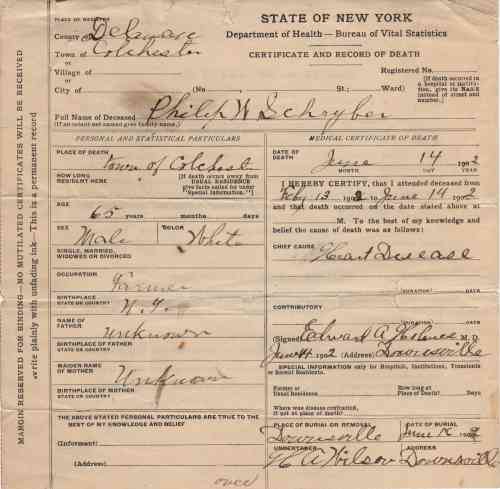 PLACE OF REGISTRY
STATE OF NEW YORK
County of Delaware
Department of Health — Bureau of Vital Statistics
Town of Colchester
CERTIFICATE AND RECORD OF DEATH
Village of
Registered No.
City of (No. St.; Ward)
(If death occurred in a hospital or institution, give its NAME instead of street and number.)
Full Name of Deceased Philip W Schryber
(If an infant not named give family name.)
PERSONAL AND STATISTICAL PARTICULARS
MEDICAL CERTIFICATE OF DEATH
PLACE OF DEATH
Town of Colchest
HOW LONG RESIDENT HERE
[If death occurs away from USUAL RESIDENCE give facts called for under "Special Information."]
DATE OF DEATH June 14 1902
MONTH DAY YEAR
I HEREBY CERTIFY, that I attended deceased from
Feby 13 1902 to June 14 1902
and that death occurred on the date stated above at
M. To the best of my knowledge and
belief the cause of death was as follows:
AGE
65 years months days
SEX Male
COLOR White
CHIEF CAUSE Heart Disease
SINGLE, MARRIED, WIDOWED OR DIVORCED
(DURATION) DAYS
OCCUPATION Farmer
BIRTHPLACE STATE OR COUNTRY N.Y.
CONTRIBUTORY
NAME OF FATHER Unknown
(DURATION) DAYS
BIRTHPLACE OF FATHER STATE OR COUNTRY
(Signed) Edward A Holmes M.D.
June 14 1902 (Address) Downsville
MAIDEN NAME OF MOTHER Unknown
SPECIAL INFORMATION only for Hospitals, Institutions, Transients or Recent Residents.
BIRTHPLACE OF MOTHER STATE OR COUNTRY
Former or Usual Resident
How long at Place of Death? Days
Where was disease contracted, if not at place of death?
THE ABOVE STATED PERSONAL PARTICULARS ARE TRUE TO THE BEST OF MY KNOWLEDGE AND BELIEF
PLACE OF BURIAL OR REMOVAL
DATE OF BURIAL
Downsville June 1902
(Informant)
UNDERTAKER
ADDRESS
H A Wilson Downsville
(Address)
over
MARGIN RESERVED FOR BINDING—NO MUTILATED CERTIFICATES WILL BE RECEIVED
Write plainly with unfading ink—This is a permanent record